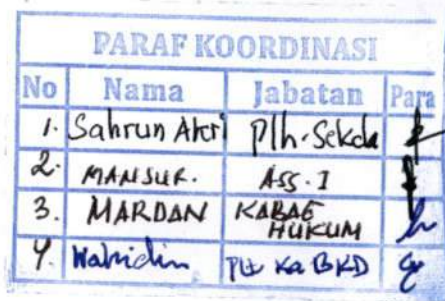 PARAF KOORDINASI
No Nama Jabatan Para
1. Sahrun Plh. Sekda
2. MANSUR. ASS. I
3. MARDAN KABAG HUKUM
4. Wahidin Plt Ka BKD